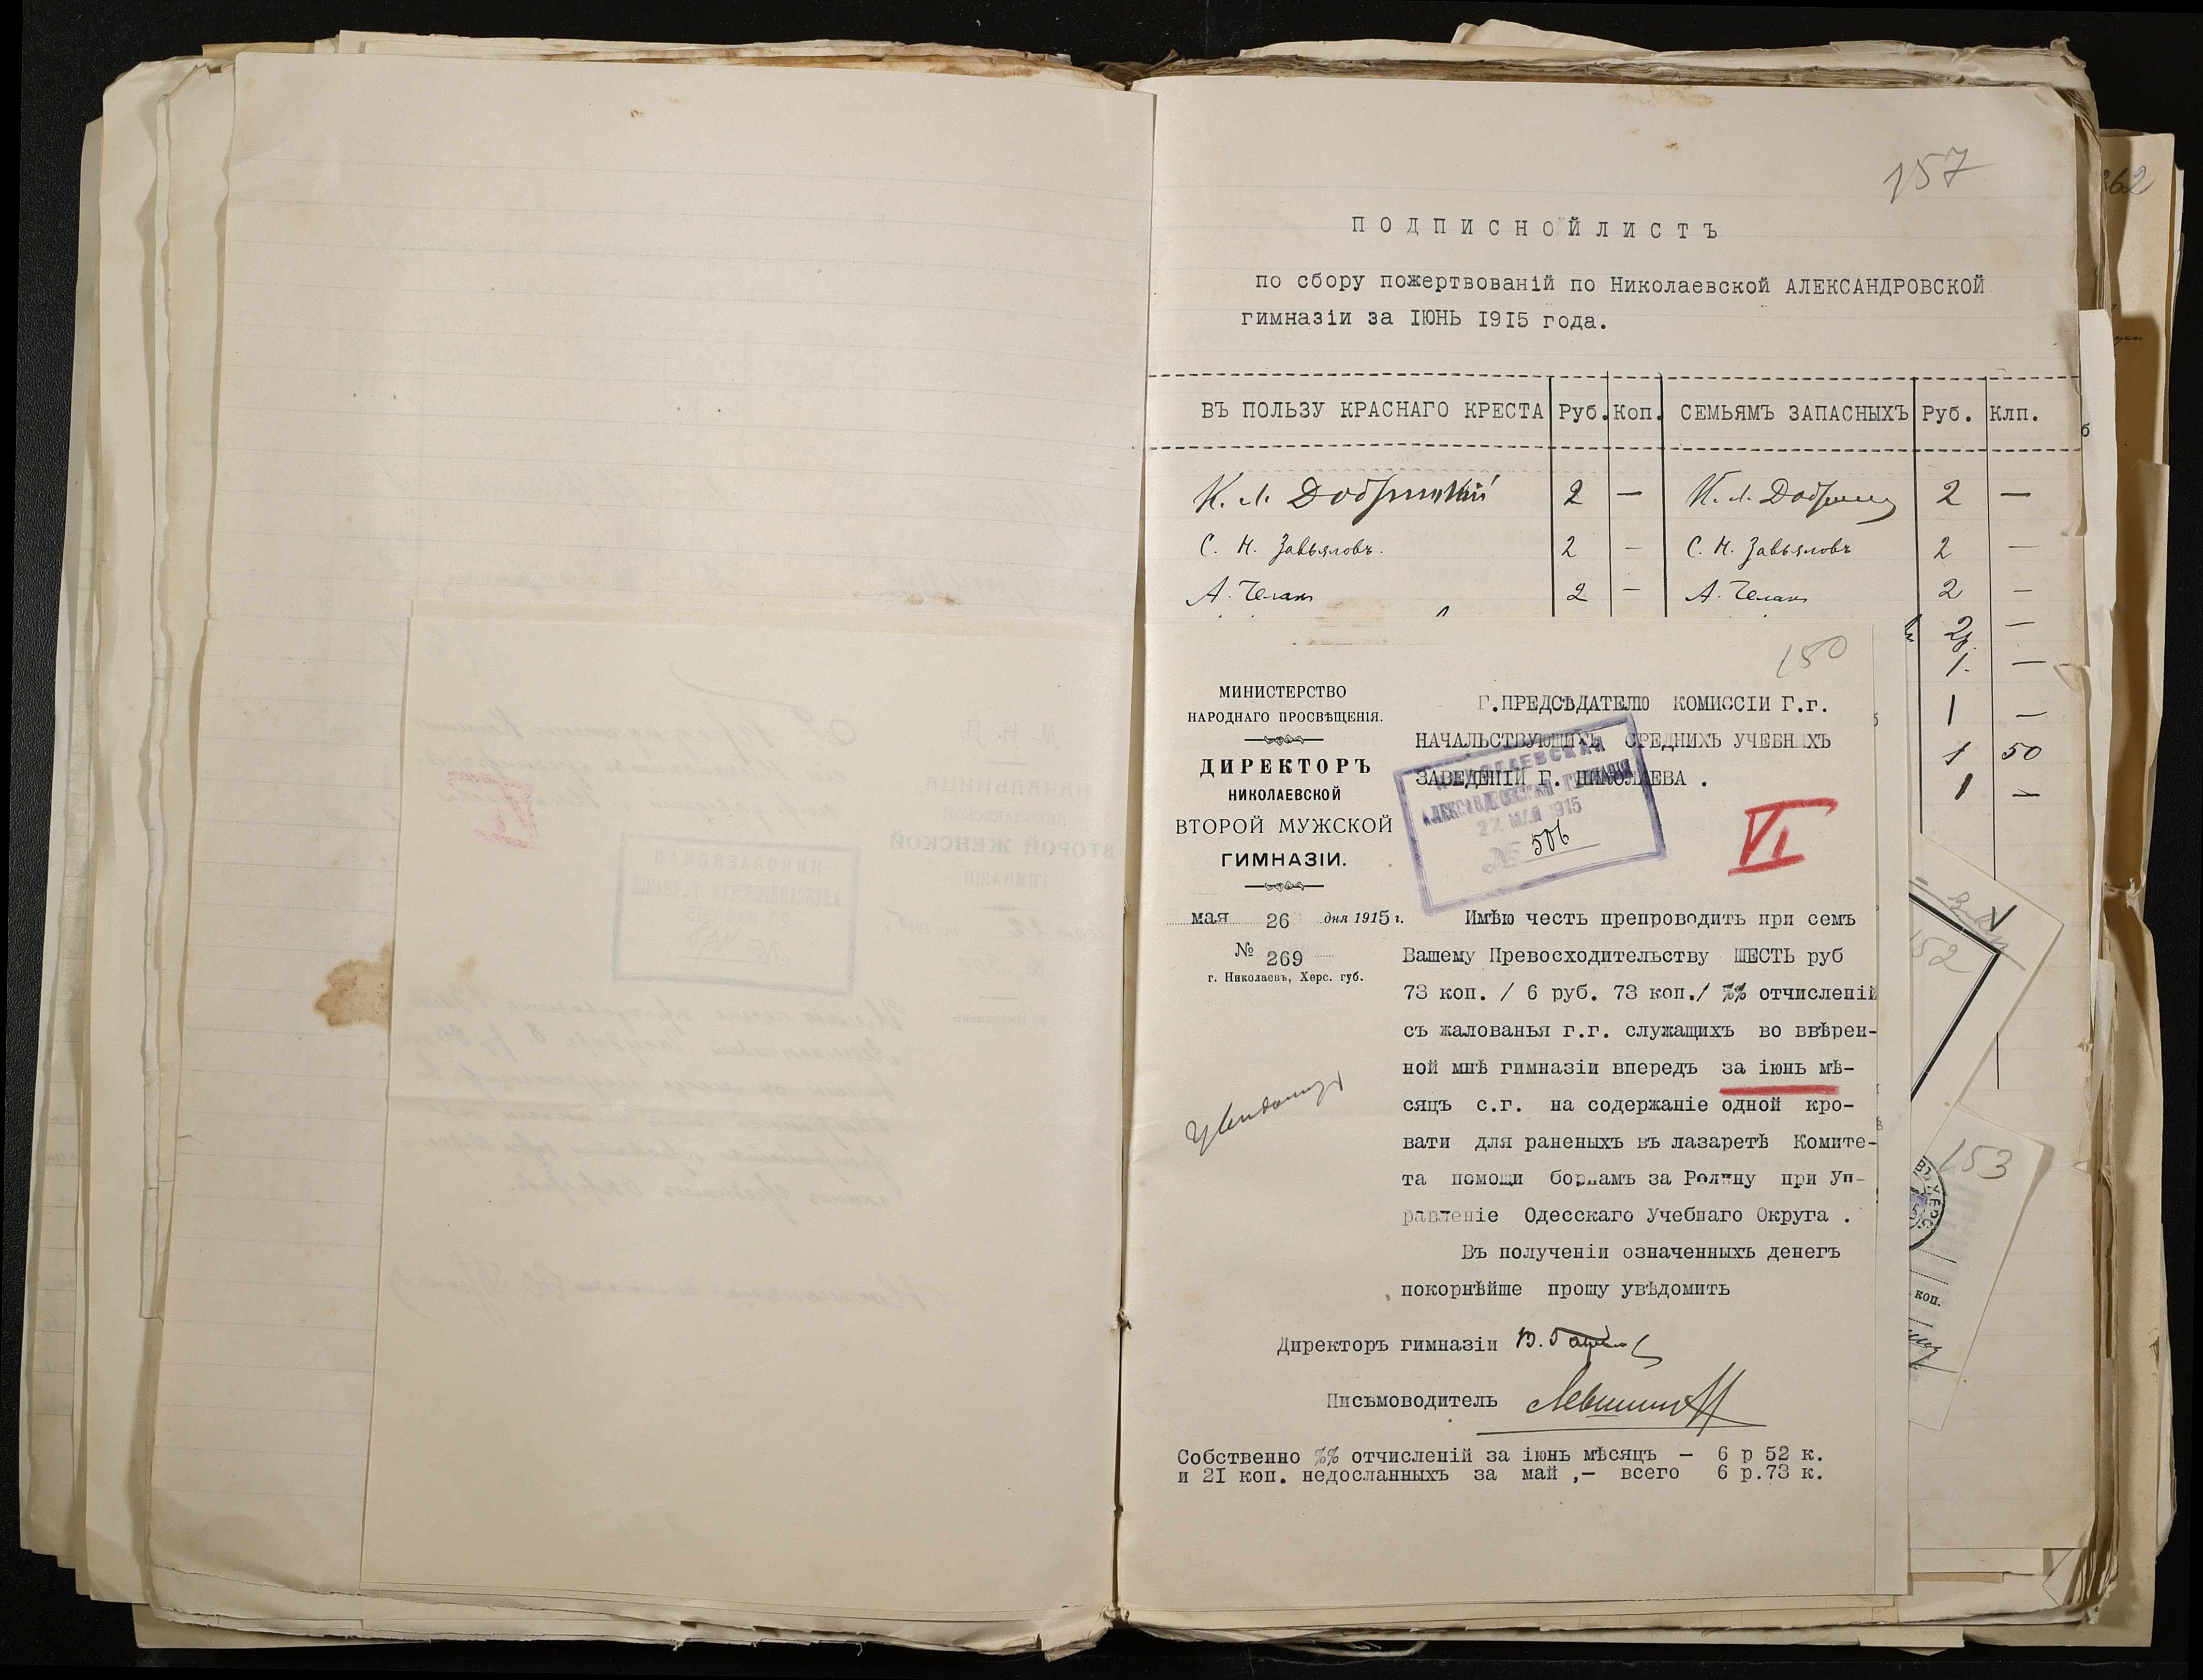 157
262
ПОДПИСНОЙ ЛИСТЪ
по сбору пожертвованій по Николаевской АЛЕКСАНДРОВСКОЙ
гимназіи за ІЮНЬ 1915 года.
ВЪ ПОЛЬЗУ КРАСНАГО КРЕСТА Руб. Коп. СЕМЬЯМЪ ЗАПАСНЫХЪ Руб. Клп.
К. Л. 2 — К. Л. 2 —
С. Н. Завьяловъ. 2 — С. Н. Завьяловъ 2 —
А. 2 — А. 2 —
2р. —
1. —
1 —
1 50
1 —
150
МИНИСТЕРСТВО
НАРОДНАГО ПРОСВѢЩЕНІЯ.
ДИРЕКТОРЪ
НИКОЛАЕВСКОЙ
ВТОРОЙ МУЖСКОЙ
ГИМНАЗІИ.
мая 26 дня 1915 г.
№ 269
г. Николаевъ, Херс. губ.
Г.ПРЕДСѢДАТЕЛЮ КОМИССІИ Г.г.
НАЧАЛЬСТВУЮЩИХЪ СРЕДНИХЪ УЧЕБНЫХЪ
ЗАВЕДЕНІЙ Г. НИКОЛАЕВА .
НИКОЛАЕВСКАЯ
АЛЕКСАНДРОВСКАЯ ГИМНАЗІЯ
27 МАЙ 1915
№ 506
VI
Имѣю честь препроводить при семъ
Вашему Превосходительству ШЕСТЬ руб
73 коп. / 6 руб. 73 коп./ %% отчисленій
съ жалованья г.г. служащихъ во ввѣрен-
ной мнѣ гимназіи впередъ за іюнь мѣ-
сяцъ с.г. на содержаніе одной кро-
вати для раненыхъ въ лазаретѣ Комите-
та помощи борцамъ за Родину при Уп-
равленіе Одесскаго Учебнаго Округа .
Въ полученіи означенныхъ денегъ
покорнѣйше прошу увѣдомить
Директоръ гимназіи В.
Письмоводитель
Собственно %% отчисленій за іюнь мѣсяцъ - 6 р 52 к.
и 21 коп. недосланныхъ за май ,- всего 6 р.73 к.
152
153
коп.